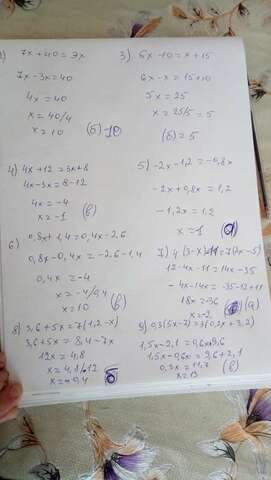 7x+40=3x
7x-3x=40
4x=40
x=40/4
x=10 (б) 10
3) 6x-10=x+15
6x-x=15+10
5x=25
x=25/5=5
(б)=5
4) 4x+12=3x+8
4x-3x=8-12
4x=-4
x=-1 (в)
5) -2x-1,2=-0,8x
-2x+0,8x=1,2
-1,2x=1,2
x=1 (а)
6) 0,8x+1,4=0,4x-2,6
0,8x-0,4x=-2,6-1,4
0,4x=-4
x=-4/0,4
x=10 (в)
7) 4(3-x)-11=7(2x-5)
12-4x-11=14x-35
-4x-14x=-35-12+11
18x=-36
x=-2 (а)
8) 3,6+5x=7(1,2-x)
3,6+5x=8,4-7x
12x=4,8
x=4,8/12
x=0,4 б
9) 0,3(5x-7)=3(0,2x+3,2)
1,5x-2,1=0,6x+9,6
1,5x-0,6x=9,6+2,1
0,9x=11,7
x=13 (в)